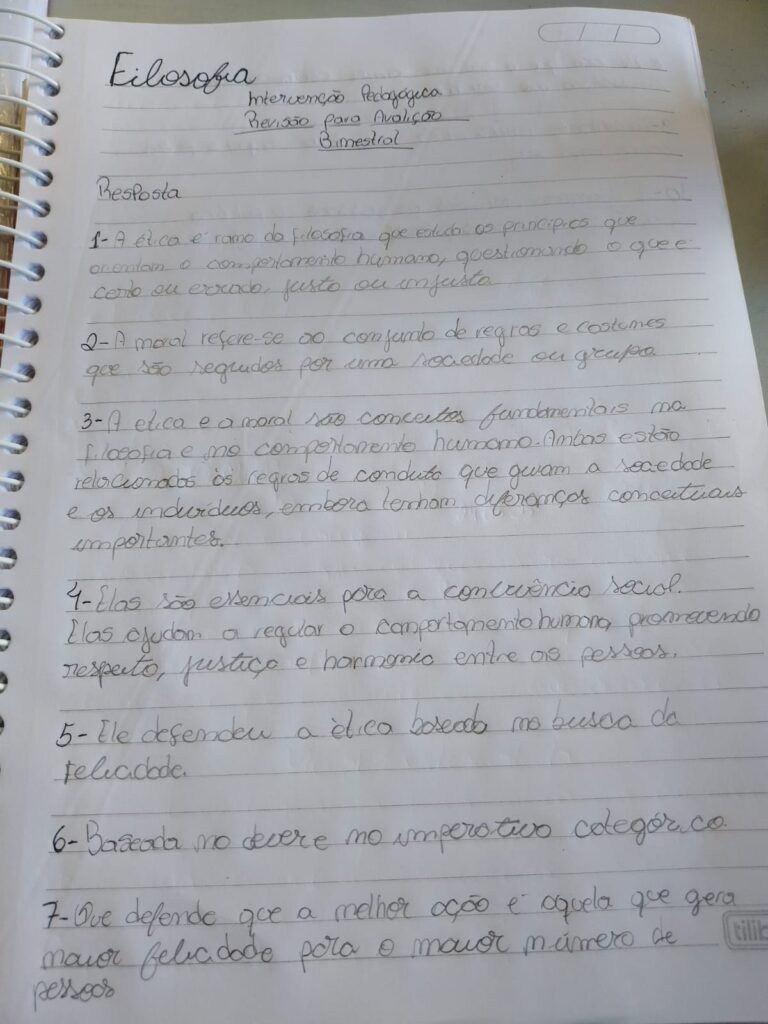 Filosofia
Intervenção Pedagógica
Revisão para Avalição
Bimestral
Resposta
1- A ética e ramo da filosofia que estuda os princípios que
orientam o comportamento humano, questionando o que e
certo ou errado, justo ou injusto
2- A moral refere-se ao conjunto de regras e costumes
que são seguidos por uma sociedade ou grupo
3- A etica e a moral são conceitos fundamentais na
filosofia e no comportamento humano. Ambas estão
relacionados às regras de conduta que guiam a sociedade
e os indivíduos, embora tenham diferenças conceituais
importantes.
4- Elas são essenciais para a convivência social.
Elas ajudam a regular o comportamento humano, promovendo
respeito, justiça e harmonia entre as pessoas.
5- Ele defendeu a ética baseada na busca da
felicidade.
6- Baseada no dever e no imperativo categórico.
7- Que defende que a melhor ação e aquela que gera
maior felicidade para o maior número de
pessoas
tilib